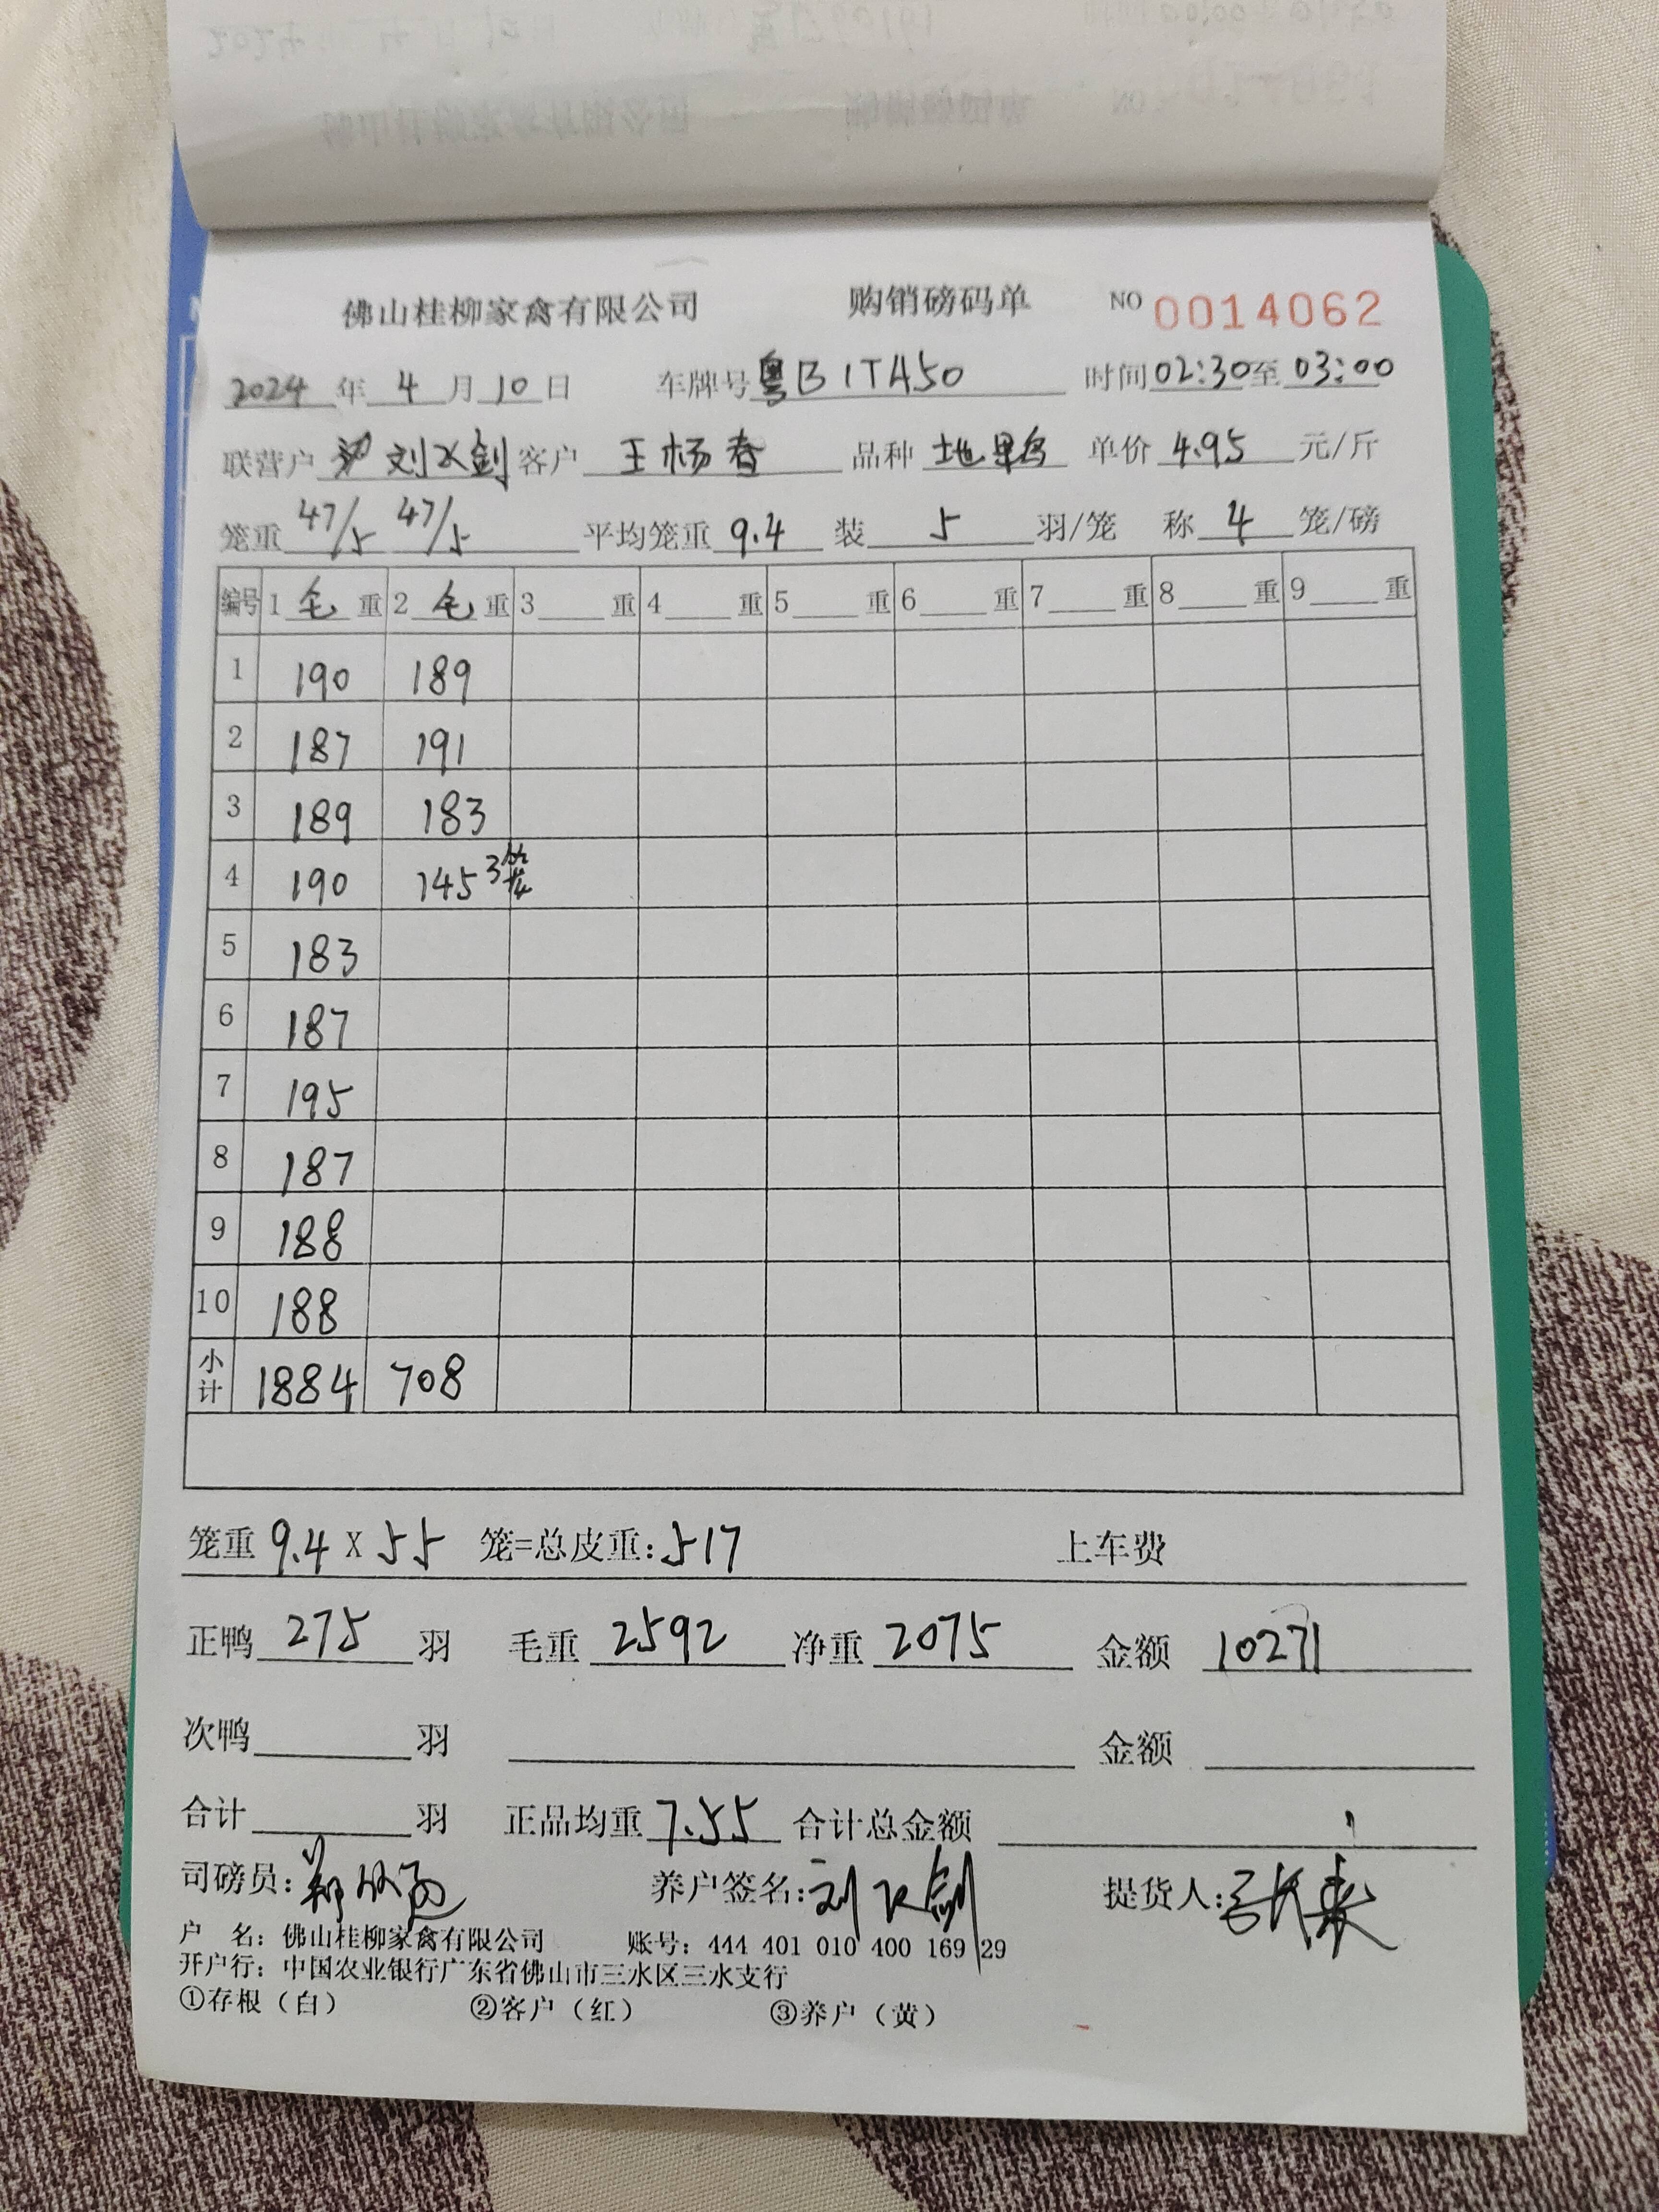 佛山桂柳家禽有限公司 购销磅码单 NO 0014062
2024 年 4 月 10 日 车牌号 粤B 1TA50 时间 02:30 至 03:00
联营户 刘 剑 客户 王杨春 品种 地鸭 单价 4.95 元/斤
笼重 47/5 47/5 平均笼重 9.4 装 5 羽/笼 称 4 笼/磅
编号 1 毛 重 2 毛 重 3 重 4 重 5 重 6 重 7 重 8 重 9 重
1 190 189
2 187 191
3 189 183
4 190 145 3笼
5 183
6 187
7 195
8 187
9 188
10 188
小计 1884 708
笼重 9.4 X 55 笼=总皮重: 517 上车费
正鸭 275 羽 毛重 2592 净重 2075 金额 10271
次鸭 羽 金额
合计 羽 正品均重 7.55 合计总金额
司磅员: 养户签名: 刘 剑 提货人:
户 名: 佛山桂柳家禽有限公司 账号: 444 401 010 400 169 29
开户行: 中国农业银行广东省佛山市三水区三水支行
①存根（白） ②客户（红） ③养户（黄）